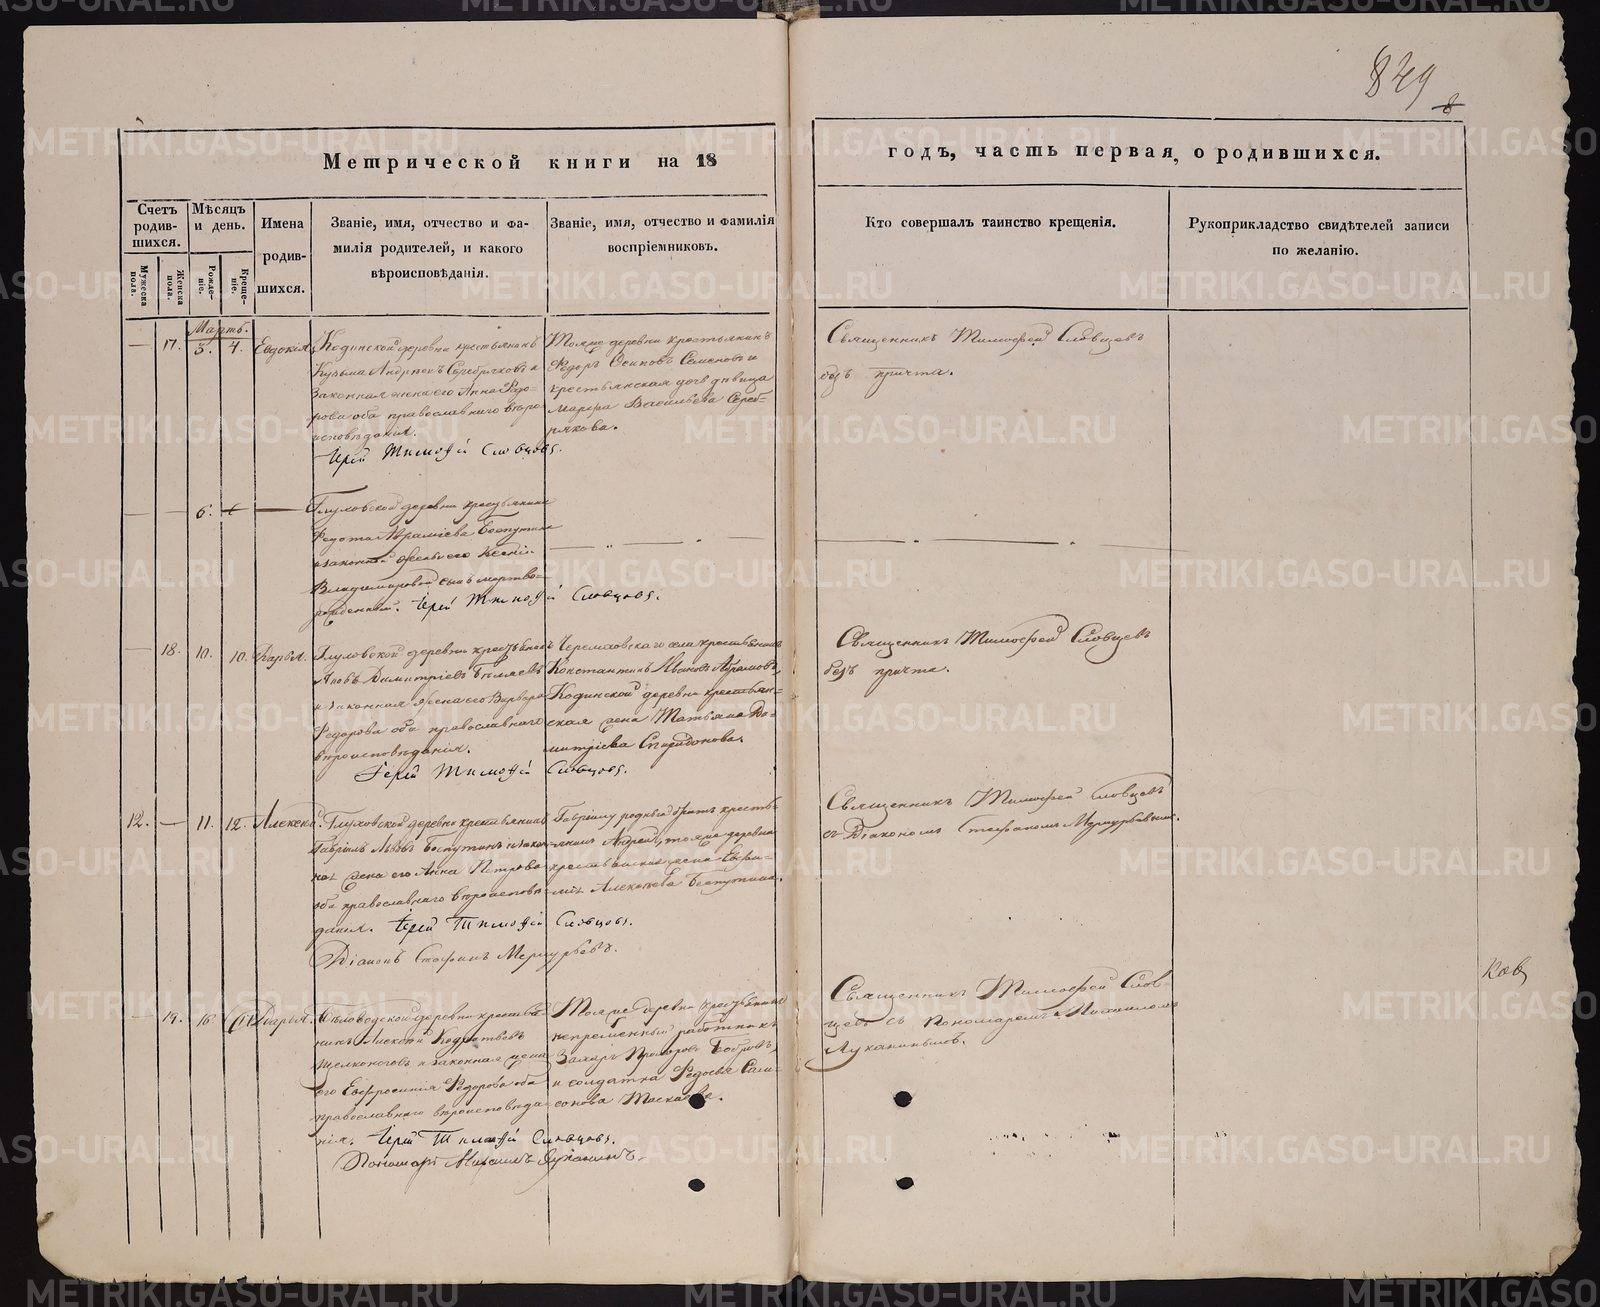 829
8
Метрической книги на 18
годъ, часть первая, о родившихся.
Счетъ родив-шихся.
Мужеска пола.
Женска пола.
Мѣсяцъ и день.
Рожде-ніе.
Креще-ніе.
Имена родив-шихся.
Званіе, имя, отчество и фа-
милія родителей, и какого
вѣроисповѣданія.
Званіе, имя, отчество и фамилія
воспріемниковъ.
Кто совершалъ таинство крещенія.
Рукоприкладство свидѣтелей записи
по желанію.
Мартъ.
17. 3. 4. Евдокія
Кодинской деревни крестьянинъ
Кузьма Андреевъ Серебряковъ и
законная жена его Анна Фёдо-
рова оба православнаго вѣро
исповѣданія.
Іерей Тимофей Словцовъ.
Тояже деревни крестьянинъ
Федоръ Осиповъ Семеновъ и
крестьянская дочь дѣвица
Марфа Васильева Сереб-
рякова.
Священникъ Тимофей Словцевъ
безъ причта.
6.
деревни крестьянина
Федота Авраміева Беспутина
и законной жены его Ксеніи
Владимировой сынъ мертво-
рожденный. Іерей Тимофей Словцовъ.
18. 10. 10. Дарья.
деревни крестьянинъ
Іаковъ Димитріевъ
и законная жена его Варвара
Федорова оба православнаго
вѣроисповѣданія.
Іерей Тимофей Словцовъ.
Черемховскаго села крестьянинъ
Константинъ Ивановъ Абрамовъ,
Кодинской деревни крестьян-
ская жена Татьяна Ди-
митріева Спиридонова.
Священникъ Тимофей Словцевъ
безъ причта.
12. 11. 12. Алексей.
деревни крестьянинъ
Гавріилъ Львовъ Беспутинъ и закон-
ная жена его Анна Петрова
оба православнаго вѣроисповѣ-
данія. Іерей Тимофей Словцовъ.
Діаконъ Стефанъ Меркурьевъ.
Гавріилу родный братъ кресть-
янинъ Андрей, тояже деревни
крестьянская жена Евфи-
мія Алексѣева Беспутина.
Священникъ Тимофей Словцевъ
съ Діакономъ Стефаномъ Меркурьевымъ.
19. 16 17 Дарья.
деревни крестья-
нинъ Алексей Кодратьевъ
Щелконоговъ и законная жена
его Евфросинія Федорова оба
православнаго вѣроисповѣда-
нія. Іерей Тимофей Словцовъ.
Пономарь Михаилъ Луканинъ.
Тояже деревни крестьянинъ
непременный работникъ
Захаръ Прохоровъ Бобровъ,
и солдатка Федосья Сам-
сонова
Священникъ Тимофей Слов-
цевъ съ Пономаремъ Михаиломъ
Луканинымъ.
METRIKI.GASO-URAL.RU